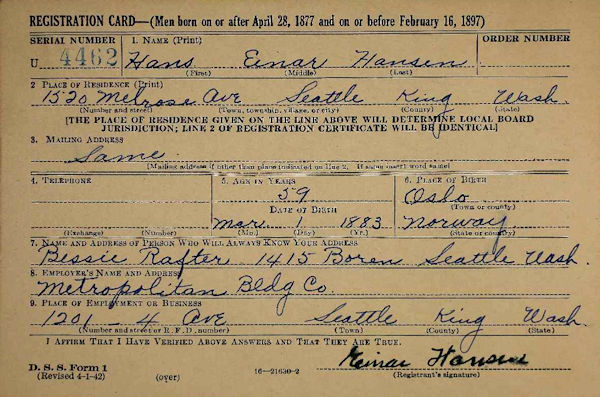 REGISTRATION CARD—(Men born on or after April 28, 1877 and on or before February 16, 1897)
SERIAL NUMBER 1. NAME (Print) ORDER NUMBER
U 4462 Hans Einar Hansen
(First) (Middle) (Last)
2. PLACE OF RESIDENCE (Print)
1520 Melrose Ave Seattle King Wash.
(Number and street) (Town, township, village, or city) (County) (State)
[THE PLACE OF RESIDENCE GIVEN ON THE LINE ABOVE WILL DETERMINE LOCAL BOARD
JURISDICTION; LINE 2 OF REGISTRATION CERTIFICATE WILL BE IDENTICAL]
3. MAILING ADDRESS
Same
(Mailing address if other than place indicated on line 2. If same insert word same)
4. TELEPHONE 5. AGE IN YEARS 6. PLACE OF BIRTH
59 Oslo
DATE OF BIRTH (Town or county)
Mar. 1 1883 Norway
(Exchange) (Number) (Mo.) (Day) (Yr.) (State or country)
7. NAME AND ADDRESS OF PERSON WHO WILL ALWAYS KNOW YOUR ADDRESS
Bessie Rafter 1415 Boren Seattle Wash.
8. EMPLOYER'S NAME AND ADDRESS
Metropolitan Bldg Co.
9. PLACE OF EMPLOYMENT OR BUSINESS
1201 - 4 Ave Seattle King Wash.
(Number and street or R. F. D. number) (Town) (County) (State)
I AFFIRM THAT I HAVE VERIFIED ABOVE ANSWERS AND THAT THEY ARE TRUE.
Einar Hansen
D. S. S. Form 1
(Revised 4-1-42) (over) 16—21630-2 (Registrant's signature)